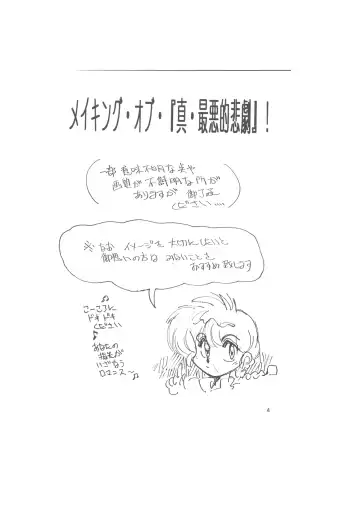 メイキング・オブ・『真・最悪的悲劇』!
一部意味不明な矢や
画質が不鮮明な所が
ありますが 御了承
ください…
※なお イメージを大切にしたいと
御思いの方は みないことを
おすすめ致します
♪
こーころに
ドキドキ
ください
♪
あなたの
指先が
いざなう
ロマンス〜